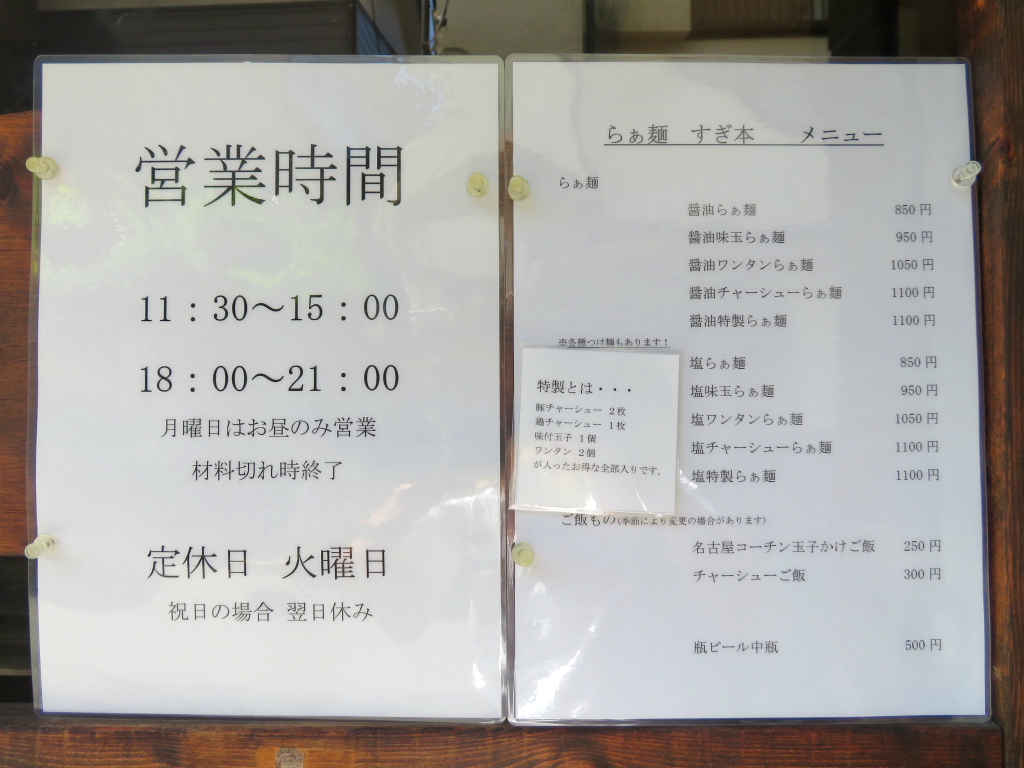 営業時間
11：30～15：00
18：00～21：00
月曜日はお昼のみ営業
材料切れ時終了
定休日 火曜日
祝日の場合 翌日休み
らぁ麺 すぎ本 メニュー
らぁ麺
醤油らぁ麺 850円
醤油味玉らぁ麺 950円
醤油ワンタンらぁ麺 1050円
醤油チャーシューらぁ麺 1100円
醤油特製らぁ麺 1100円
※各種つけ麺もあります！
塩らぁ麺 850円
塩味玉らぁ麺 950円
塩ワンタンらぁ麺 1050円
塩チャーシューらぁ麺 1100円
塩特製らぁ麺 1100円
特製とは・・・
豚チャーシュー 2枚
鶏チャーシュー 1枚
味付玉子 1個
ワンタン 2個
が入ったお得な全部入りです。
ご飯もの(季節により変更の場合があります)
名古屋コーチン玉子かけご飯 250円
チャーシューご飯 300円
瓶ビール中瓶 500円